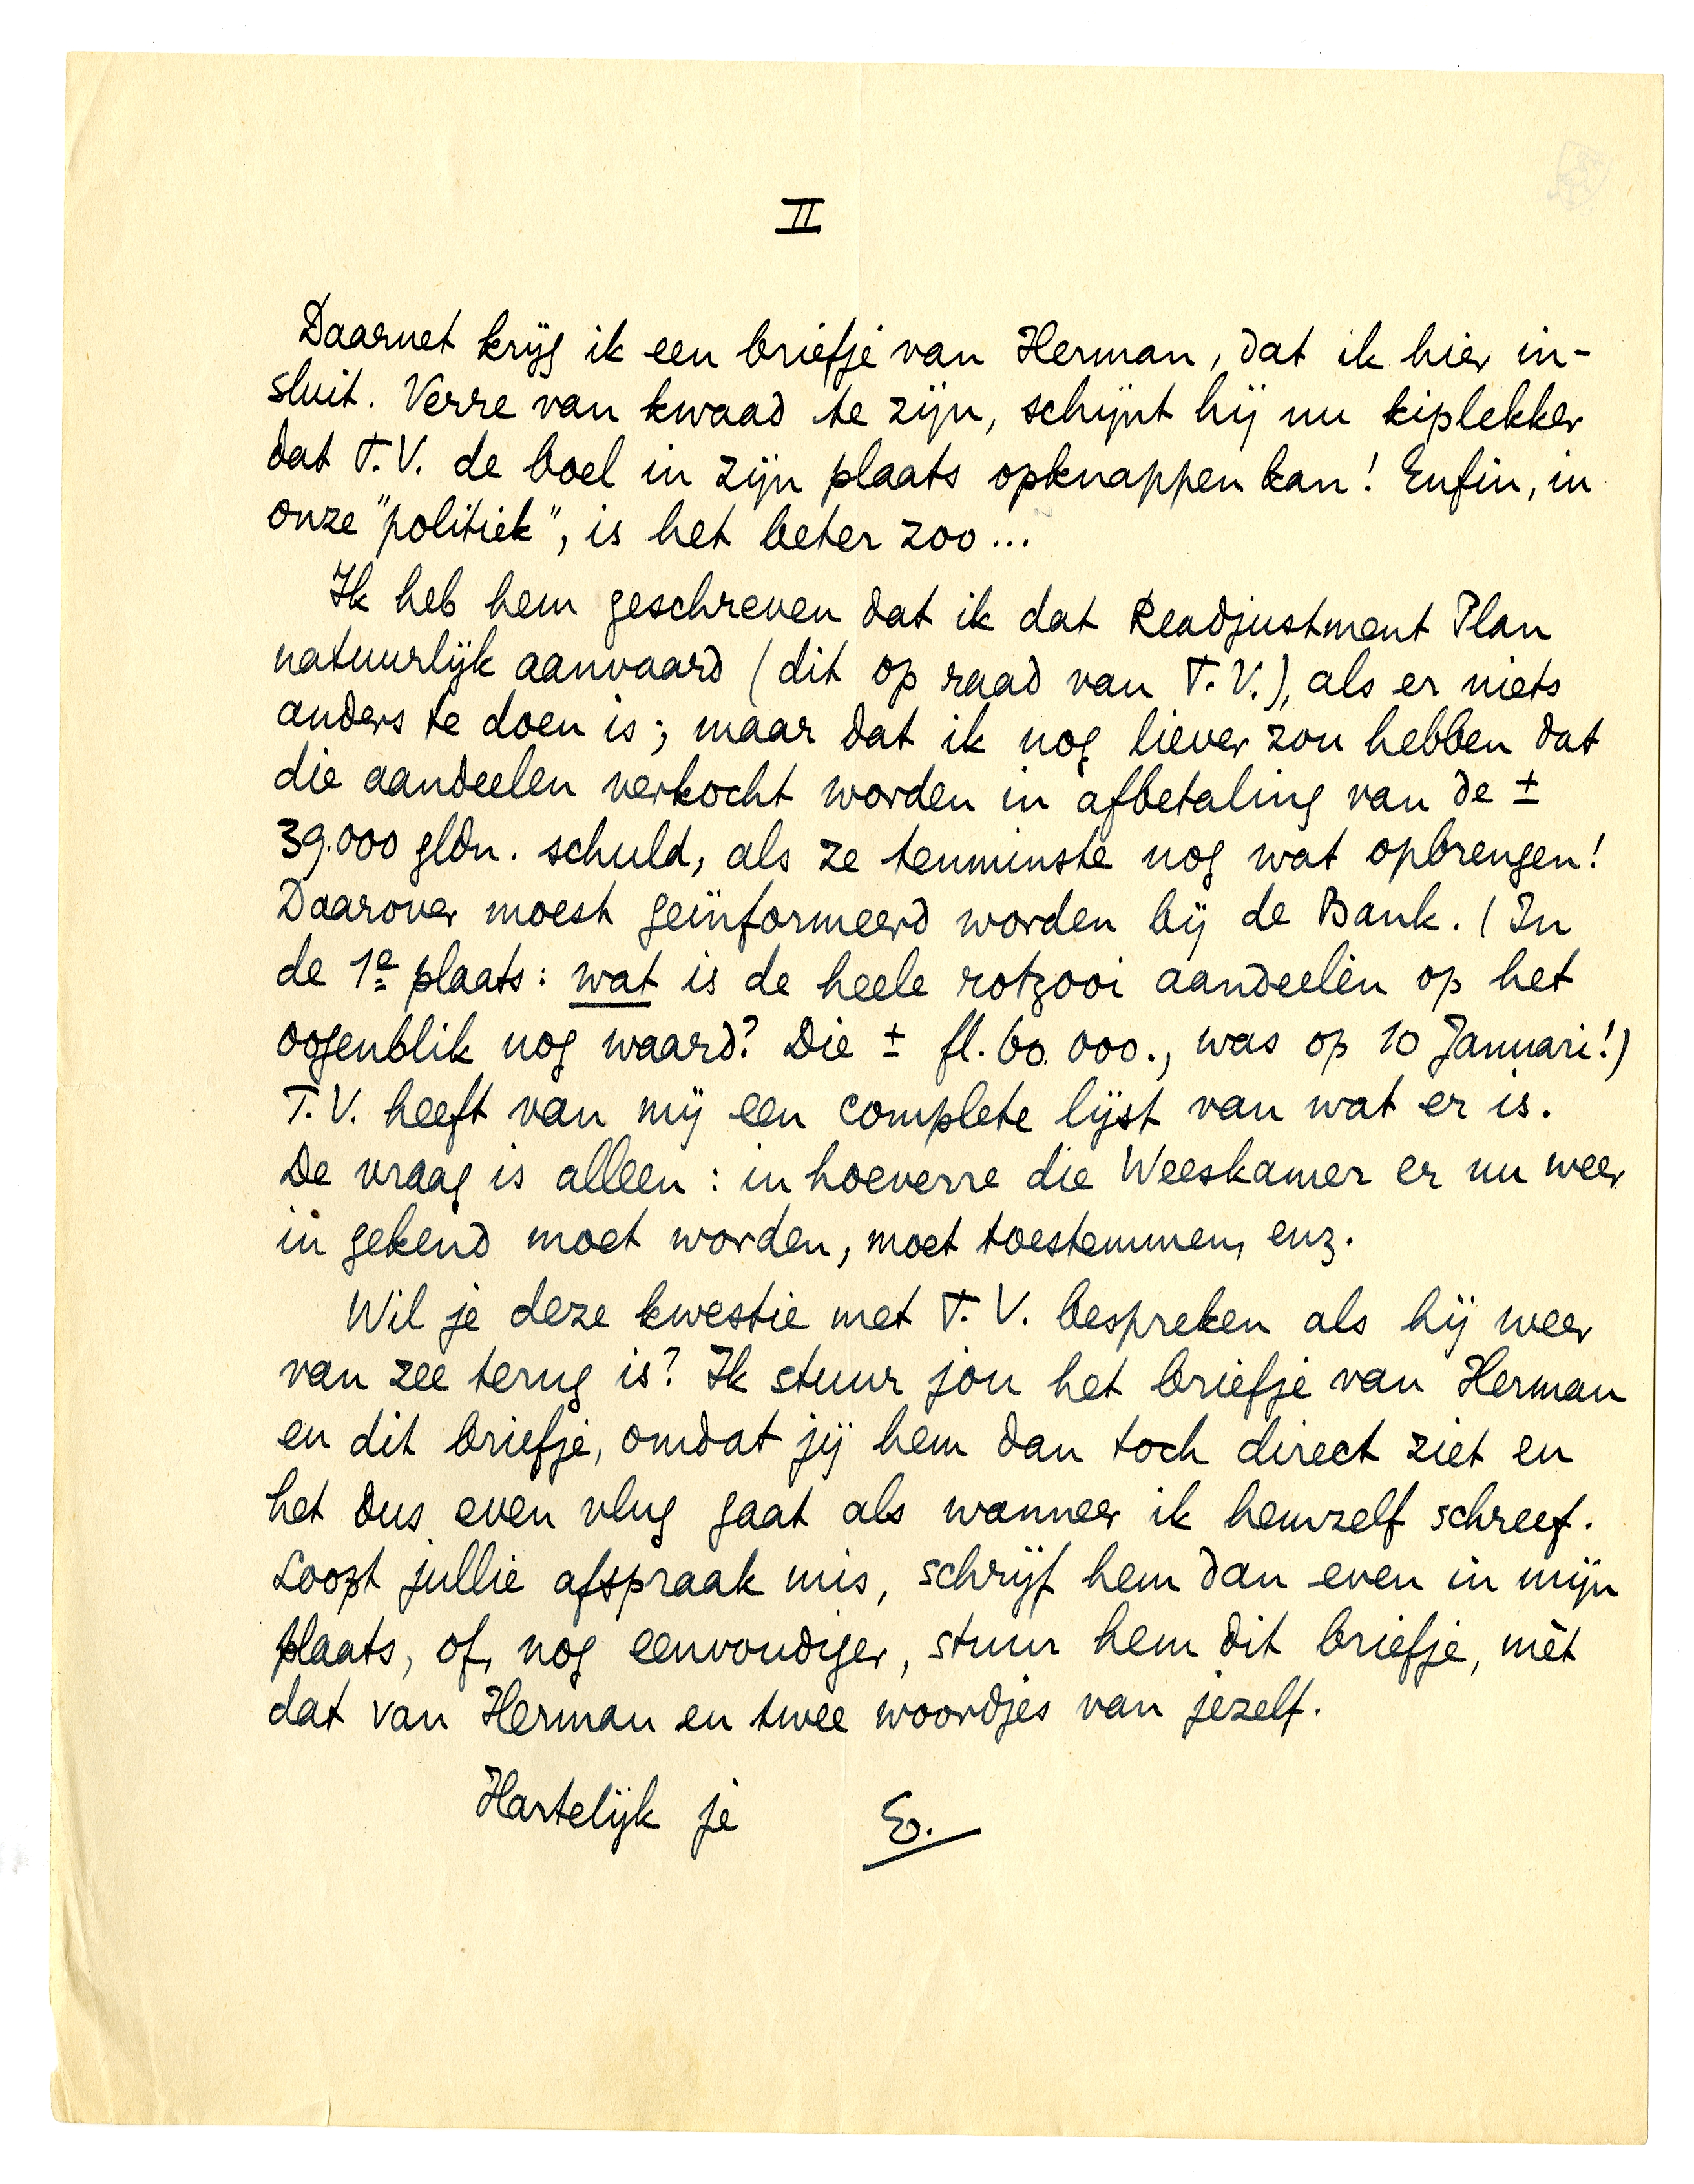 II
Daarnet krijg ik een briefje van Herman, dat ik hier in-
sluit. Verre van kwaad te zijn, schijnt hij nu kiplekker
dat T.V. de boel in zijn plaats opknappen kan! Enfin, in
onze "politiek", is het beter zoo...
Ik heb hem geschreven dat ik dat Readjustment Plan
natuurlijk aanvaard (dit op raad van T.V.), als er niets
anders te doen is; maar dat ik nog liever zou hebben dat
die aandeelen verkocht worden in afbetaling van de ±
39.000 gldn. schuld, als ze tenminste nog wat opbrengen!
Daarover moest geïnformeerd worden bij de Bank. (In
de 1e plaats: wat is de heele rotzooi aandeelen op het
oogenblik nog waard? Die ± fl. 60.000., was op 10 Januari!)
T.V. heeft van mij een complete lijst van wat er is.
De vraag is alleen: in hoeverre die Weeskamer er nu weer
in gekend moet worden, moet toestemmen, enz.
Wil je deze kwestie met T.V. bespreken als hij weer
van zee terug is? Ik stuur jou het briefje van Herman
en dit briefje, omdat jij hem dan toch direct ziet en
het dus even vlug gaat als wanneer ik hemzelf schreef.
Loopt jullie afspraak mis, schrijf hem dan even in mijn
plaats, of, nog eenvoudiger, stuur hem dit briefje, mèt
dat van Herman en twee woordjes van jezelf.
Hartelijk je E.